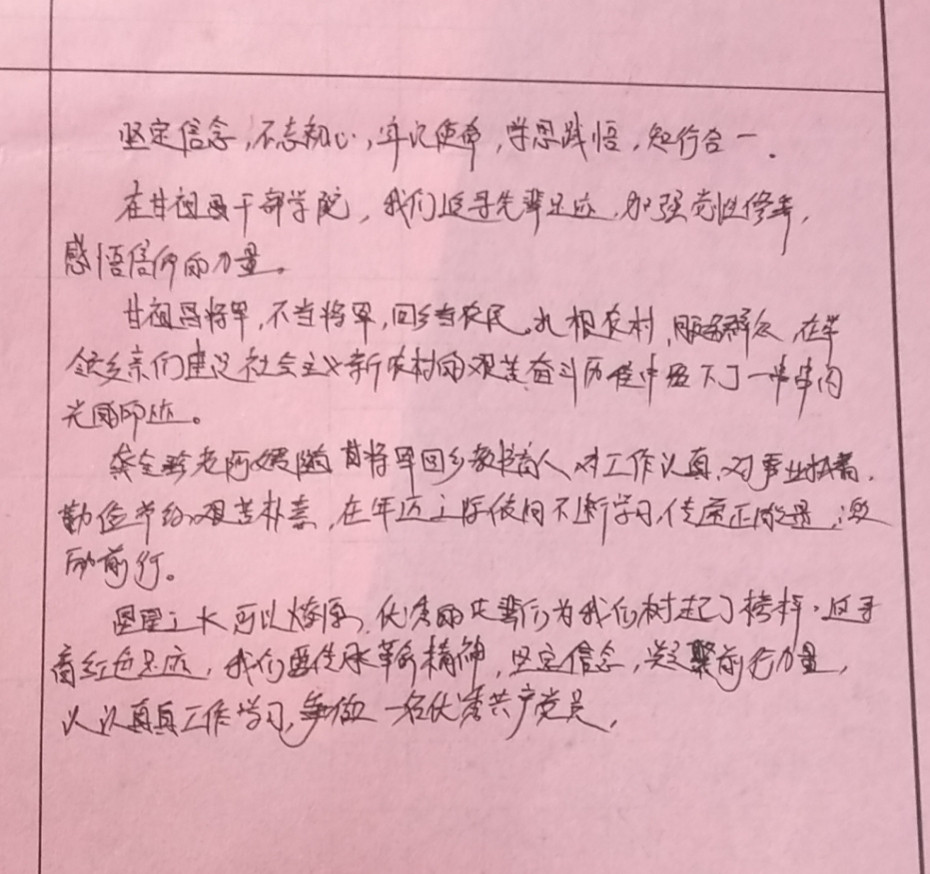 坚定信念,不忘初心,牢记使命,学思践悟,知行合一.
在甘祖昌干部学院,我们追寻先辈足迹,加强党性修养,
感悟信仰的力量。
甘祖昌将军,不当将军,回乡当农民,扎根农村,服务群众,在带
领乡亲们建设社会主义新农村的艰苦奋斗历程中留下了一串串闪
光的印迹。
龚全珍老阿姨随甘将军回乡教书育人,对工作认真,对事业执着,
勤俭节约,艰苦朴素,在年迈之际依旧不断学习,传递正能量,激
励前行。
星星之火可以燎原,优秀的先辈们为我们树起了榜样.追寻
红色足迹,我们要传承革命精神,坚定信念,凝聚前行力量,
认认真真工作学习,争做一名优秀共产党员,